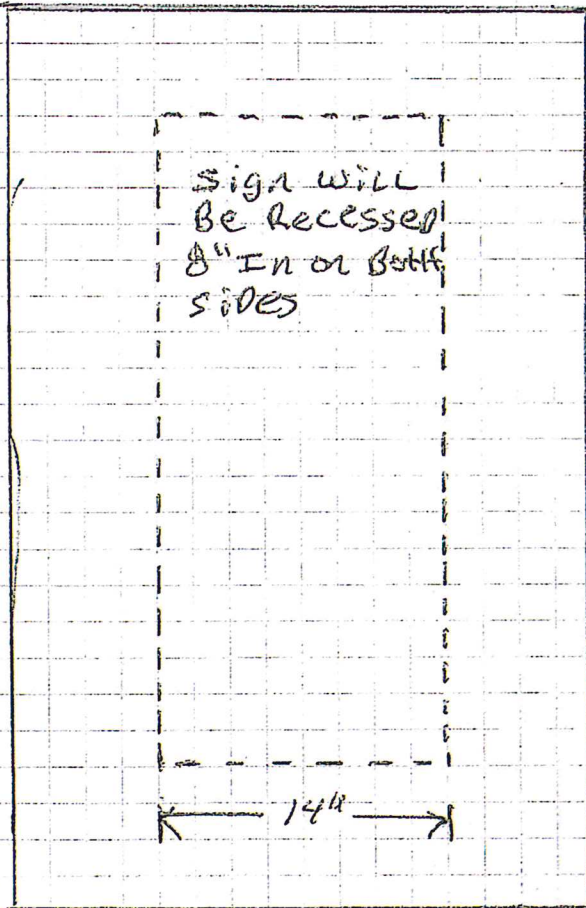 Sign WILL
Be Recessed
8" In on Both
SiDes
14"